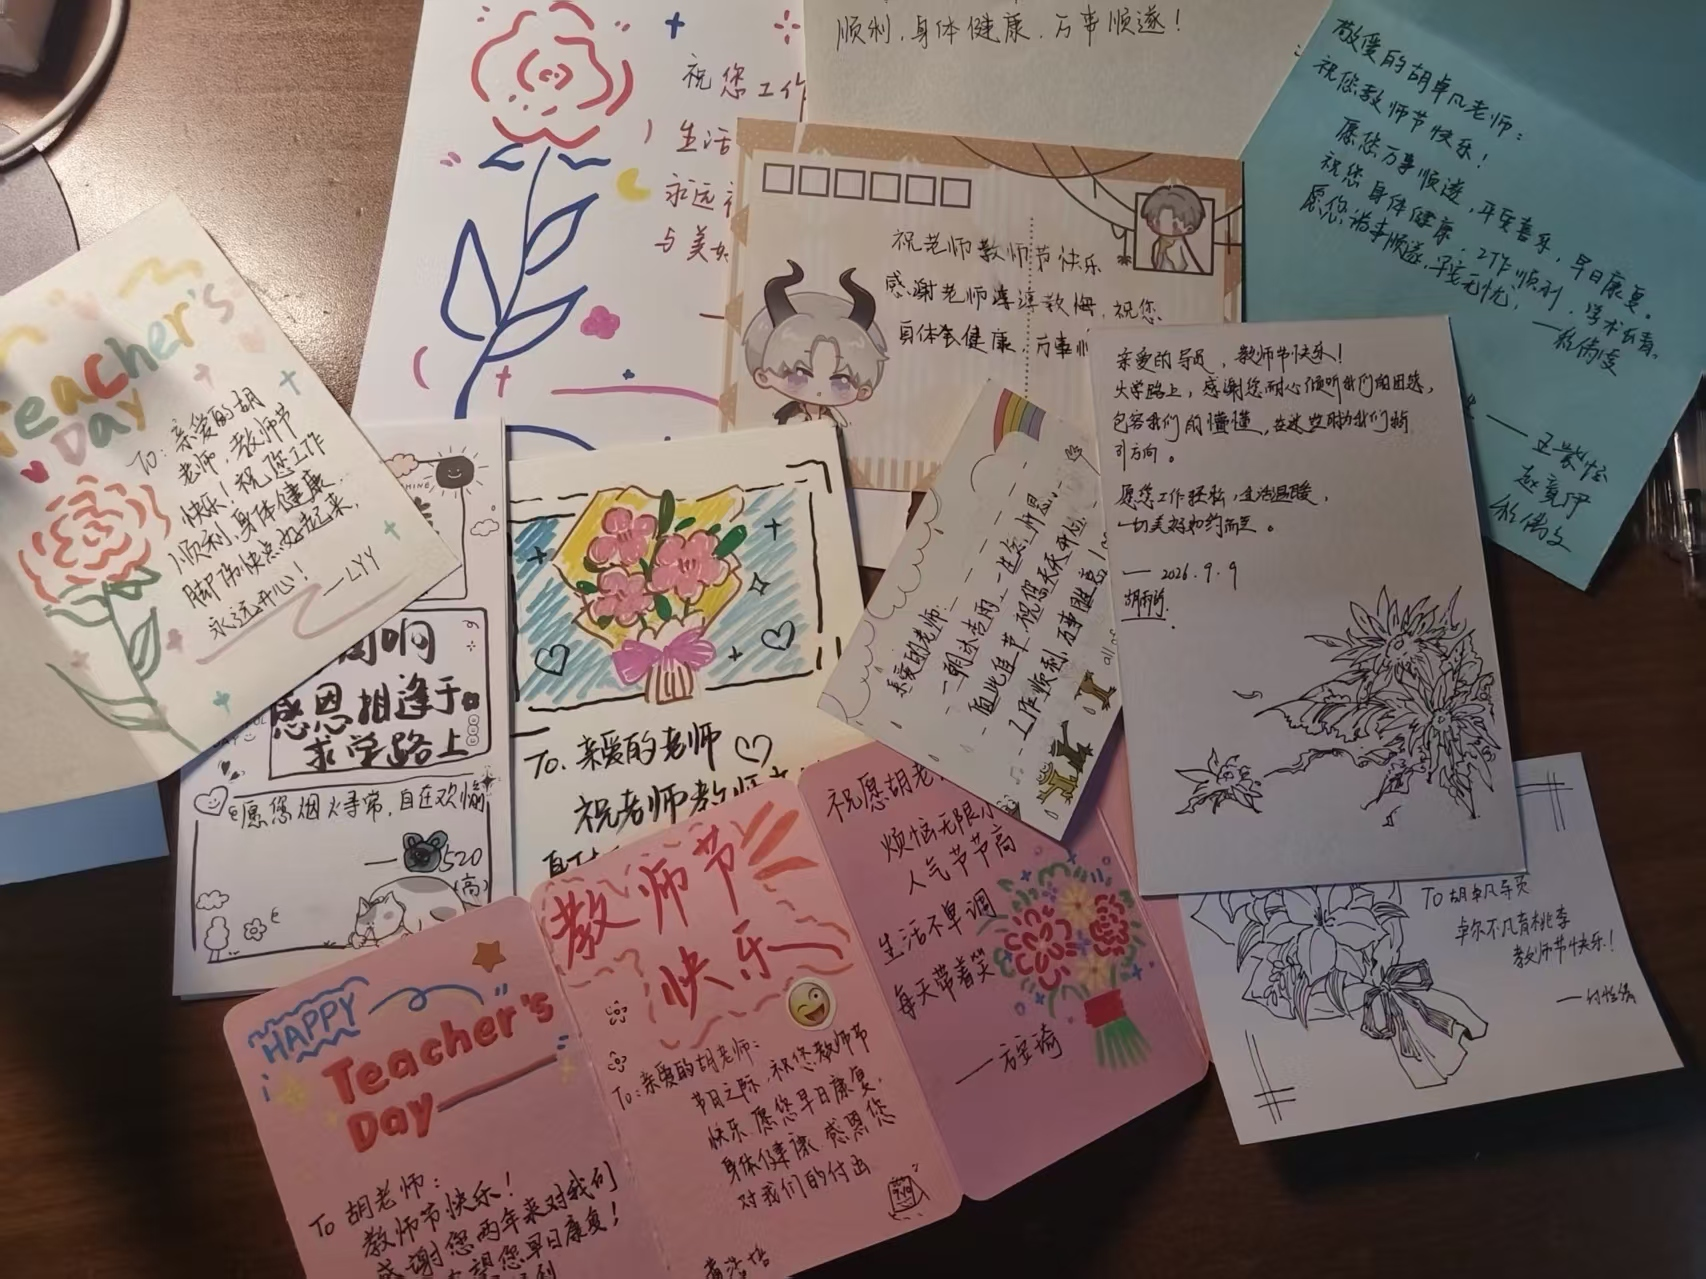 顺利,身体健康,万事顺遂!
祝您工作
生活
永远
与美
敬爱的胡卓凡老师:
祝您教师节快乐!
愿您万事顺遂,平安喜乐,早日康复。
祝您身体健康,工作顺利,学术长青。
愿您诸事顺遂,平安无忧,
祝老师教师节快乐
感谢老师谆谆教悔,祝您
身体健康,万事
Teacher's
Day
To:亲爱的胡
老师,教师节
快乐!祝您工作
顺利,身体健康,
脚伤快点好起来,
永远开心!
——LYY
亲爱的导员,教师节快乐!
大学路上,感谢您耐心倾听我们的困惑,
包容我们的懵懂,在迷茫时为我们指
引方向。
愿您工作轻松,生活温暖,
一切美好如约而至。
—— 2026.9.9
感恩相逢于
求学路上
愿您烟火寻常,自在欢愉
——520
(高)
To.亲爱的老师
祝老师教师
亲爱的老师:
一朝沐杏雨,一生念师恩。
值此佳节,祝您天天开心
工作顺利,万事胜意!
HAPPY
Teacher's
Day
To 胡老师:
教师节快乐!
感谢您两年来对我们
望您早日康复!
教师节
快乐
To:亲爱的胡老师:
节日之际,祝您教师节
快乐.愿您早日康复,
身体健康.感恩您
对我们的付出
祝愿胡老
烦恼无限小
人气节节高
生活不单调
每天带着笑
To 胡卓凡导员
卓尔不凡育桃李
教师节快乐!